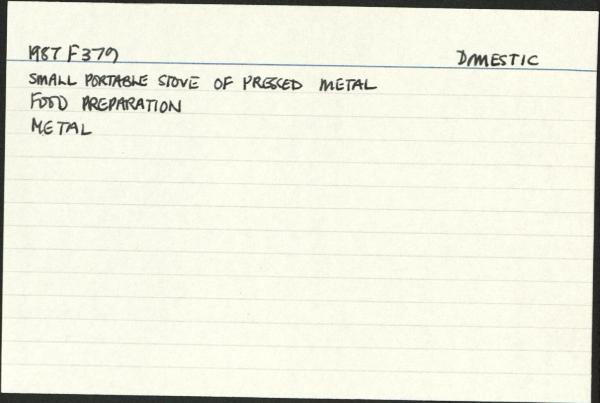 1987 F379 DOMESTIC
SMALL PORTABLE STOVE OF PRESSED METAL
FOOD PREPARATION
METAL